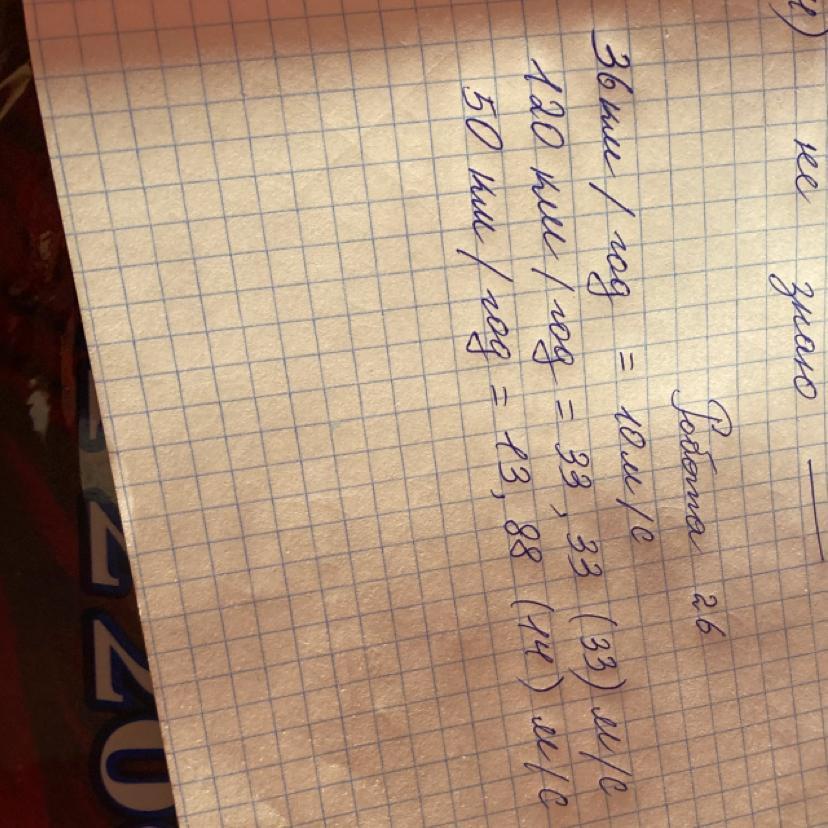 4)   не   знаю   —
Робота 26
36км/год = 10м/с
120 км/год = 33,33 (33) м/с
50 км/год = 13,88 (14) м/с